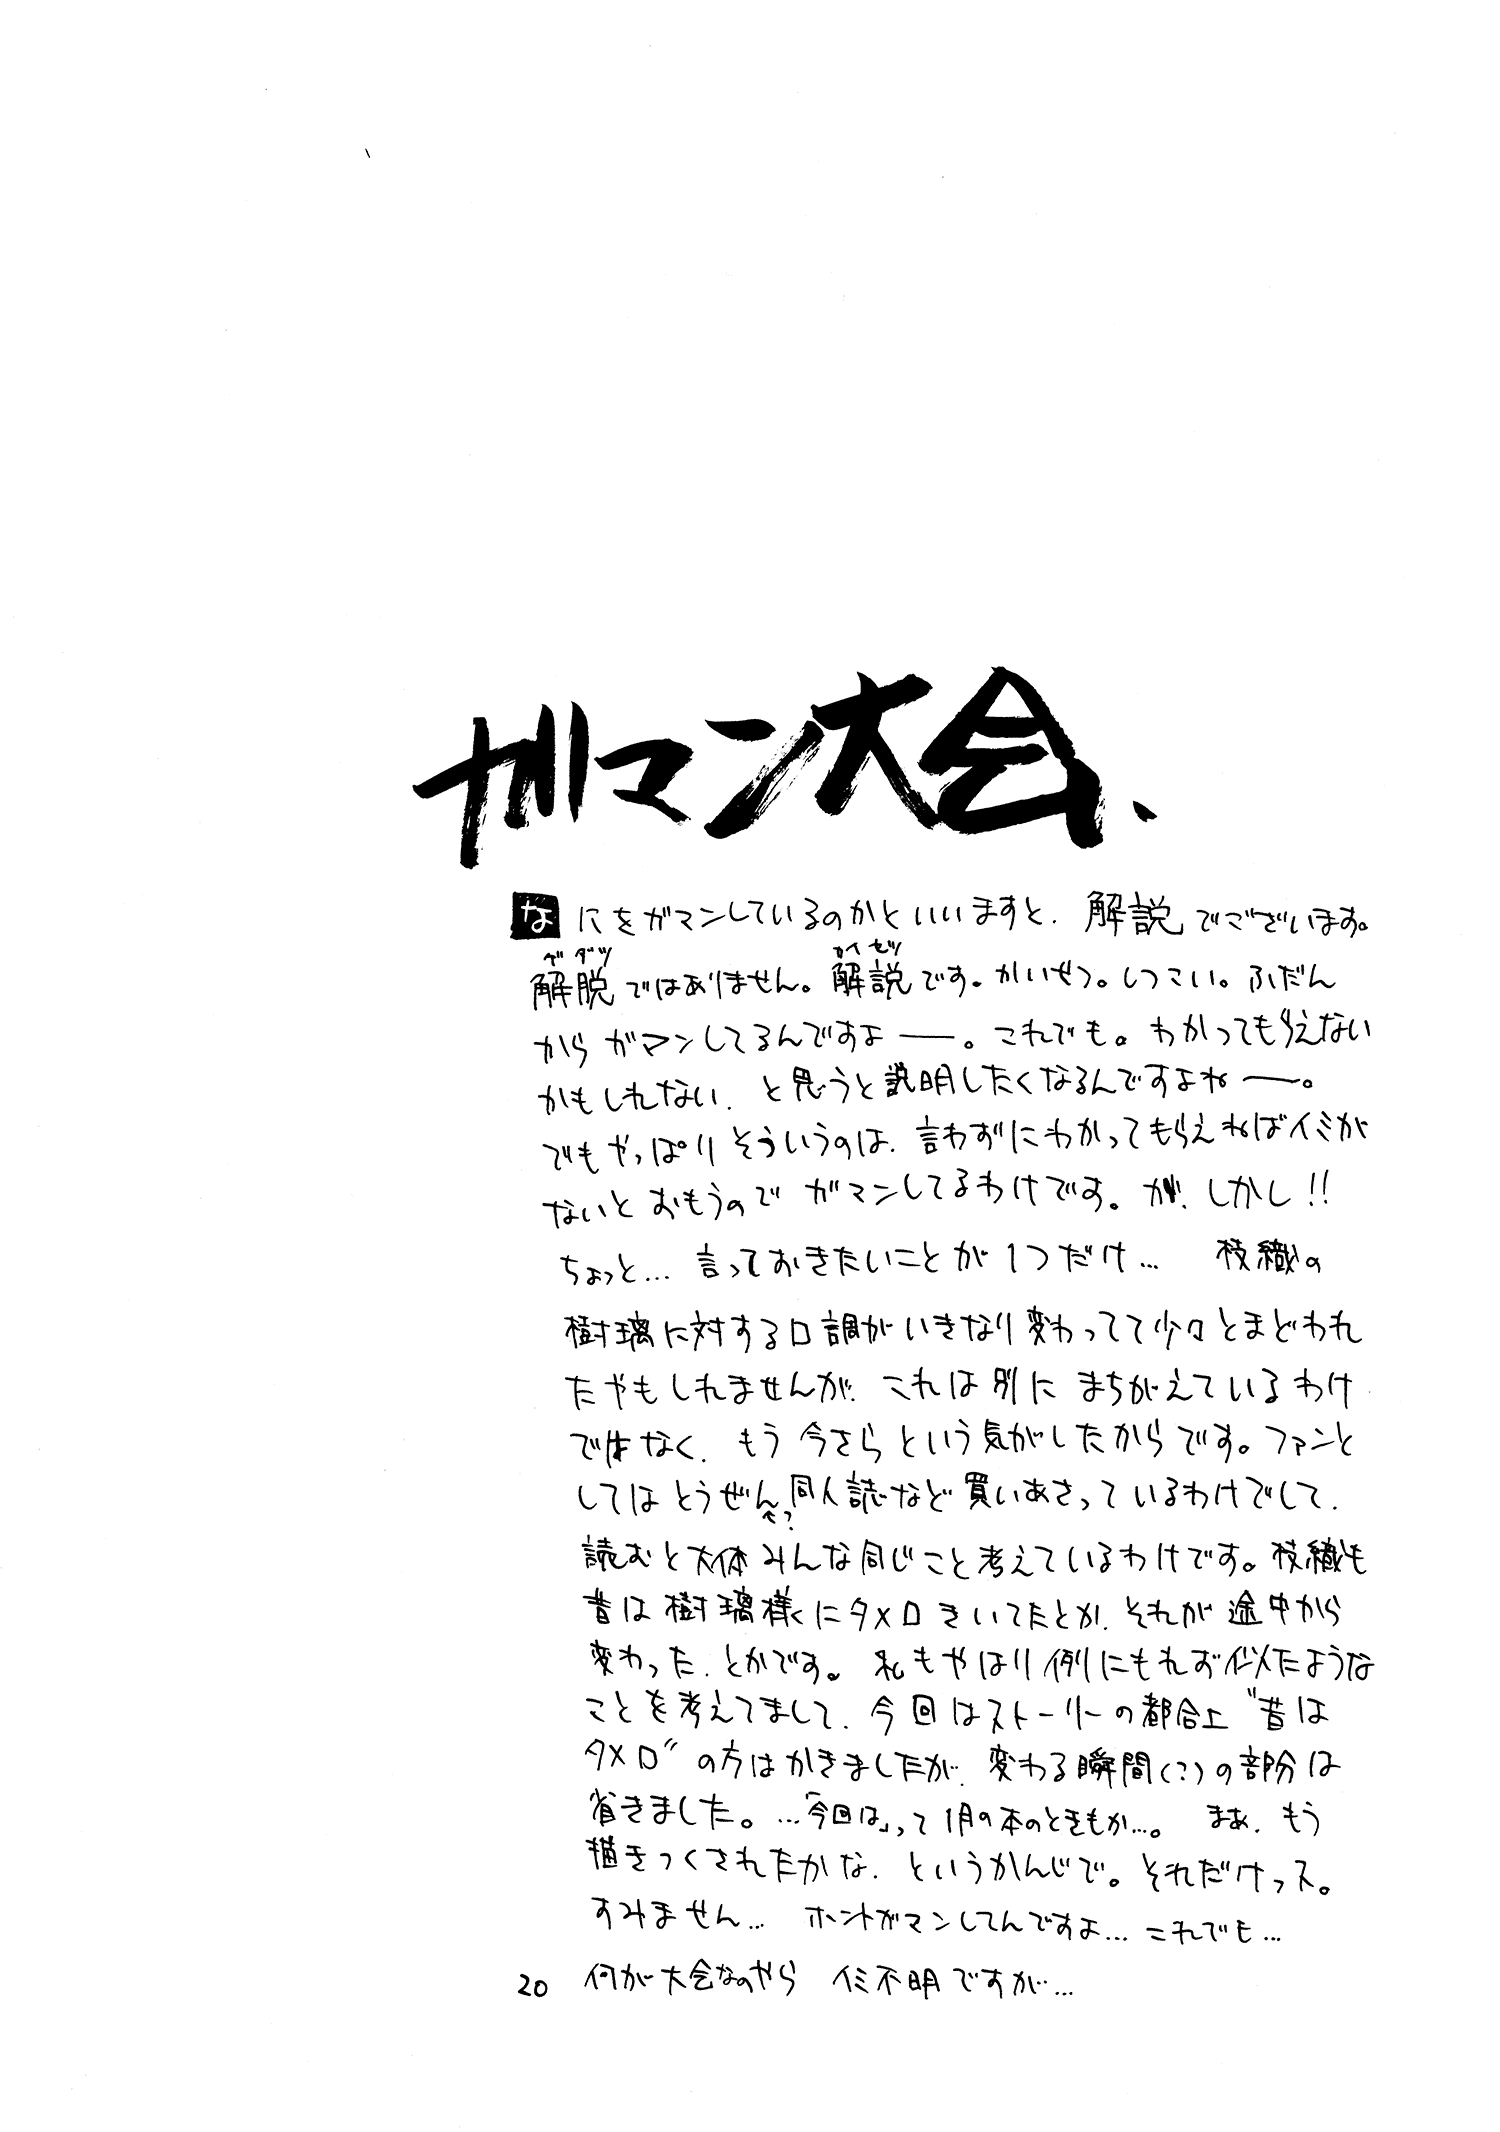 ガマン大会、
なにをガマンしているのかといいますと、解説でございます。
ゲダツ カイセツ
解脱ではありません。解説です。かいせつ。しつこい。ふだん
からガマンしてるんですよ──。これでも。わかってもらえない
かもしれない、と思うと説明したくなるんですよね──。
でもやっぱりそういうのは、言わずにわかってもらえねばイミが
ないとおもうのでガマンしてるわけです。が、しかし!!
ちょっと…言っておきたいことが1つだけ… 枝織の
樹璃に対する口調がいきなり変わってて少々とまどわれ
たやもしれませんが、これは別にまちがえているわけ
ではなく、もう今さらという気がしたからです。ファンと
してはとうぜん同人誌など買いあさっているわけでして、
へ?
読むと大体みんな同じこと考えているわけです。枝織も
昔は樹璃様にタメ口きいてたとか、それが途中から
変わった、とかです。私もやはり例にもれお似たような
ことを考えてまして、今回はストーリーの都合上〝昔は
タメ口〟の方はかきましたが、変わる瞬間(?)の部分は
省きました。…「今回は」って1月の本のときもか…。まあ、もう
描きつくされたかな、というかんじで。それだけっス。
すみません… ホントガマンしてんですよ…これでも…
何が大会なのやら イミ不明ですが…
20